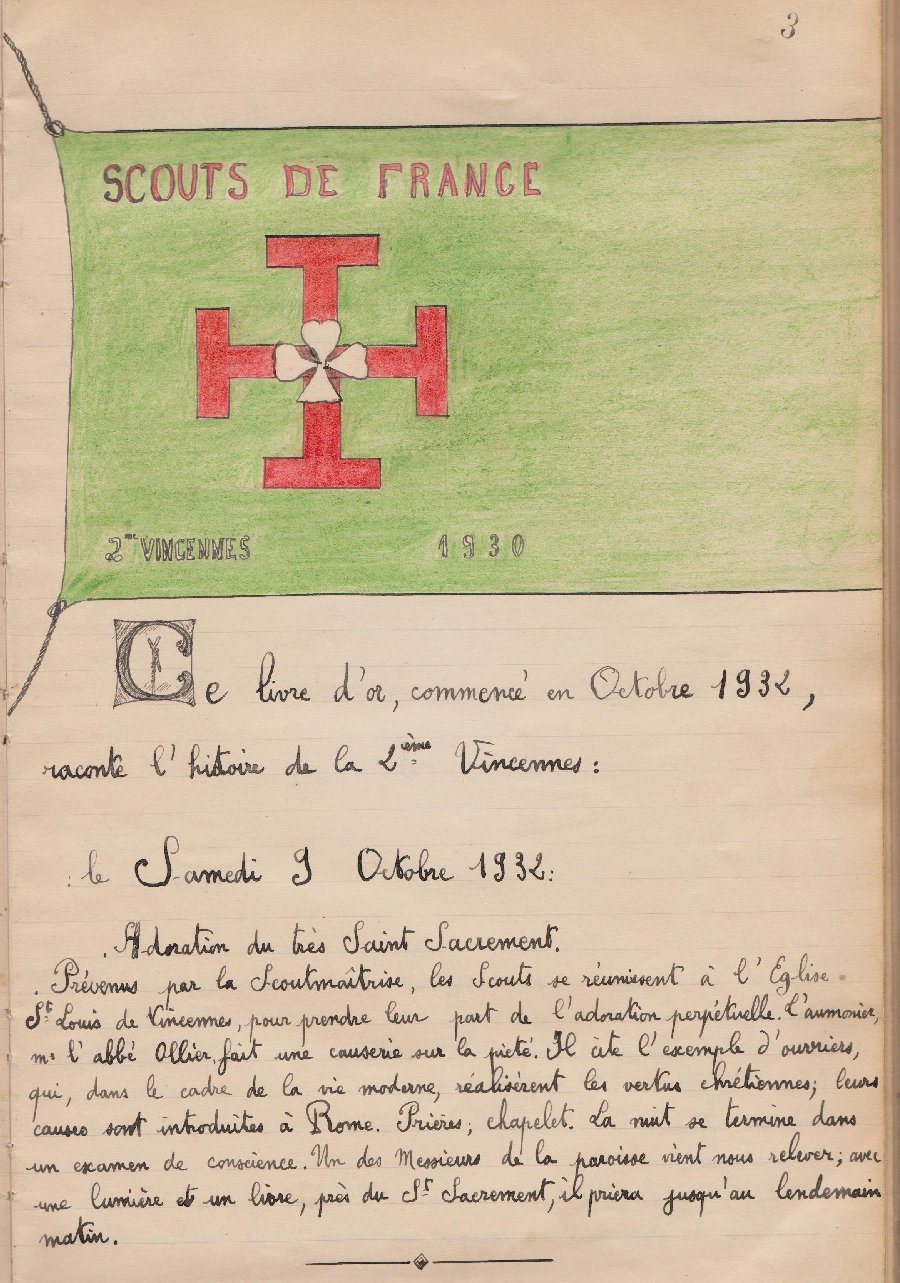 3
SCOUTS DE FRANCE
2me VINCENNES 1930
Ce livre d'or, commencé en Octobre 1932,
raconte l'histoire de la 2ième Vincennes :
le Samedi 9 Octobre 1932:
Adoration du très Saint Sacrement.
Prévenus par la Scoutmaîtrise, les Scouts se réunissent à l'Eglise
St Louis de Vincennes, pour prendre leur part de l'adoration perpétuelle. L'aumonier,
mr l'abbé Ollier, fait une causerie sur la piété. Il cite l'exemple d'ouvriers,
qui, dans le cadre de la vie moderne, réalisèrent les vertus chrétiennes; leurs
causes sont introduites à Rome. Prières; chapelet. La nuit se termine dans
un examen de conscience. Un des Messieurs de la paroisse vient nous relever; avec
une lumière et un livre, près du St Sacrement, il priera jusqu'au lendemain
matin.